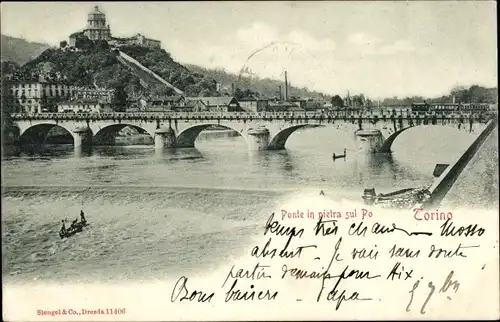 Ponte in pietra sul Po Torino
temps très chaud
absent. Je vais sans doute
partir demain pour Aix
Bons baisers Papa
Stengel & Co., Dresda 11406